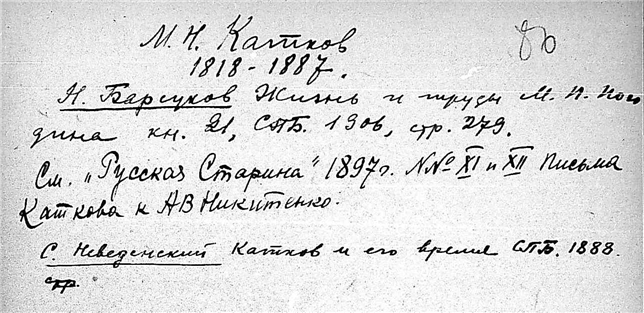 М. Н. Катков
1818-1887.
Н. Барсуков Жизнь и труды М. П. Пого
дина кн. 21, СПБ. 1906, стр. 279.
См. "Русская Старина" 1897г. N№ XI и XII Письма
Каткова к АВ Никитенко.
С. Неведенский Катков и его время СПБ. 1888.
стр.